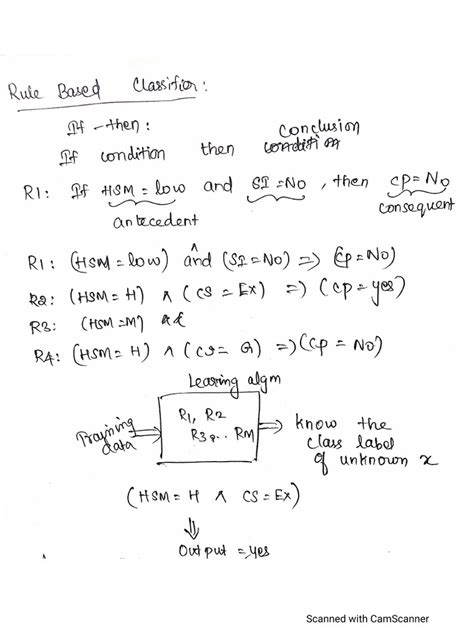 Rule Based Classifier:
If-then:
If condition then Conclusion
R1: If HSM = low and SI = NO, then CP = NO
antecedent consequent
R1: (HSM = low) ^ and (SI = NO) => (CP = NO)
R2: (HSM = H) ^ (CS = EX) => (CP = yes)
R3: (HSM = M) &
R4: (HSM = H) ^ (CS = G) => (CP = NO)
Learing algm
Training data => R1, R2 R3, .. RM => know the class label of unknown x
(HSM = H ^ CS = EX)
Output = yes
Scanned with CamScanner